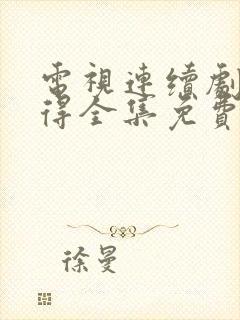 電視連續劇
得全集免費
徐曼